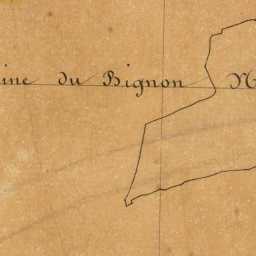 ine du Bignon N